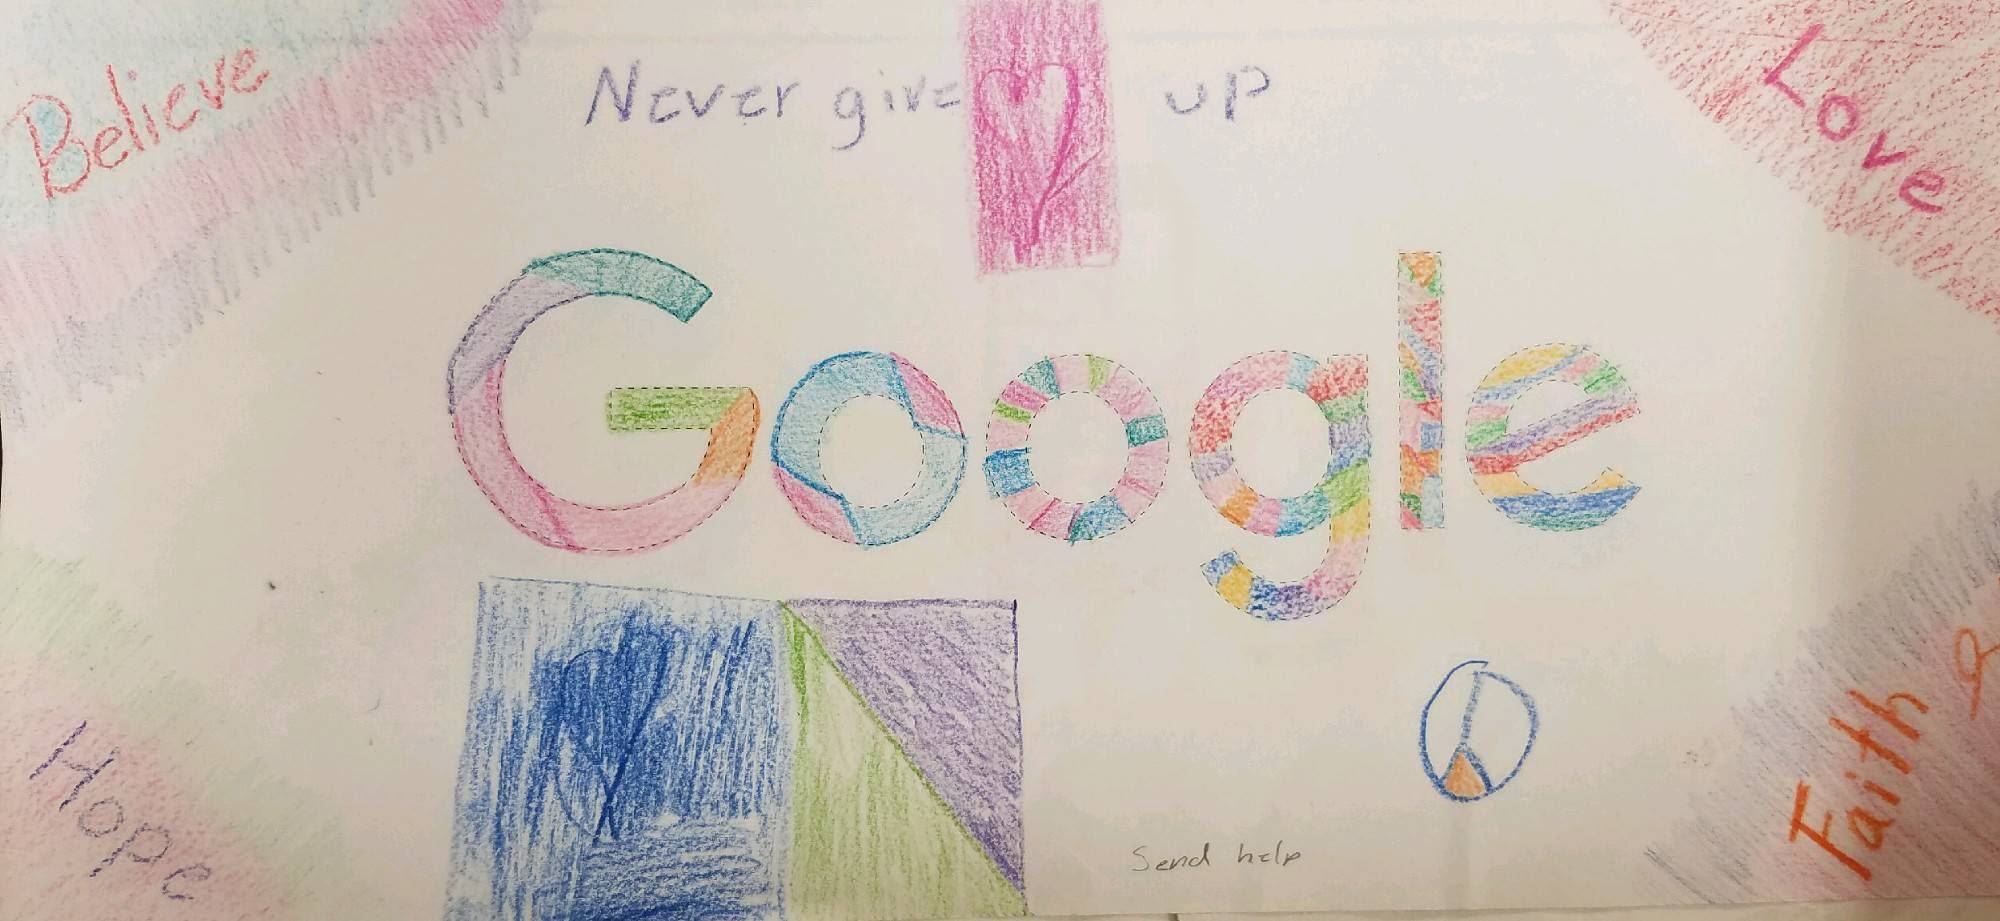 Believe
Never give up
Love
Google
Hope
Send help
Faith